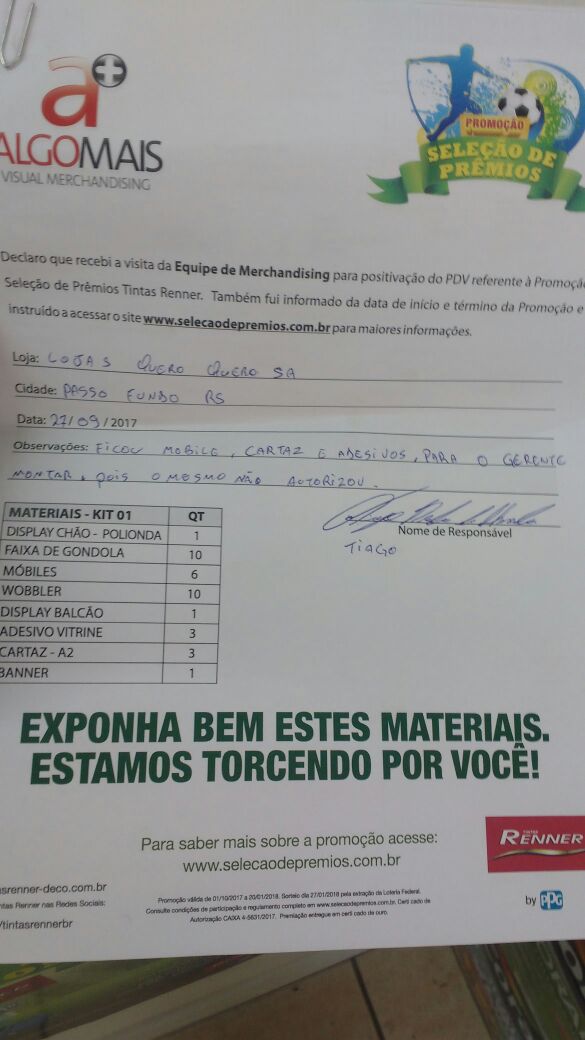 a+
ALGOMAIS
VISUAL MERCHANDISING
PROMOÇÃO
SELEÇÃO DE
PRÊMIOS
Declaro que recebi a visita da Equipe de Merchandising para positivação do PDV referente à Promoção
Seleção de Prêmios Tintas Renner. Também fui informado da data de início e término da Promoção e
instruído a acessar o site www.selecaodepremios.com.br para maiores informações.
Loja: LOJAS QUERO QUERO SA
Cidade: PASSO FUNDO RS
Data: 27/09/2017
Observações: FICOU MOBILE, CARTAZ E ADESIVOS, PARA O GERENTE
MONTAR, POIS O MESMO NÃO AUTORIZOU.
MATERIAIS - KIT 01 QT
DISPLAY CHÃO - POLIONDA 1
FAIXA DE GONDOLA 10
MÓBILES 6
WOBBLER 10
DISPLAY BALCÃO 1
ADESIVO VITRINE 3
CARTAZ - A2 3
BANNER 1
Nome de Responsável
TIAGO
EXPONHA BEM ESTES MATERIAIS.
ESTAMOS TORCENDO POR VOCÊ!
Para saber mais sobre a promoção acesse:
www.selecaodepremios.com.br
TINTAS
RENNER
by PPG
asrenner-deco.com.br
ntas Renner nas Redes Sociais:
/tintasrennerbr
Promoção válida de 01/10/2017 a 20/01/2018. Sorteio dia 27/01/2018 pela extração da Loteria Federal.
Consulte condições de participação e regulamento completo em www.selecaodepremios.com.br. Certi cado de
Autorização CAIXA 4-5631/2017. Premiação entregue em certi cado de ouro.